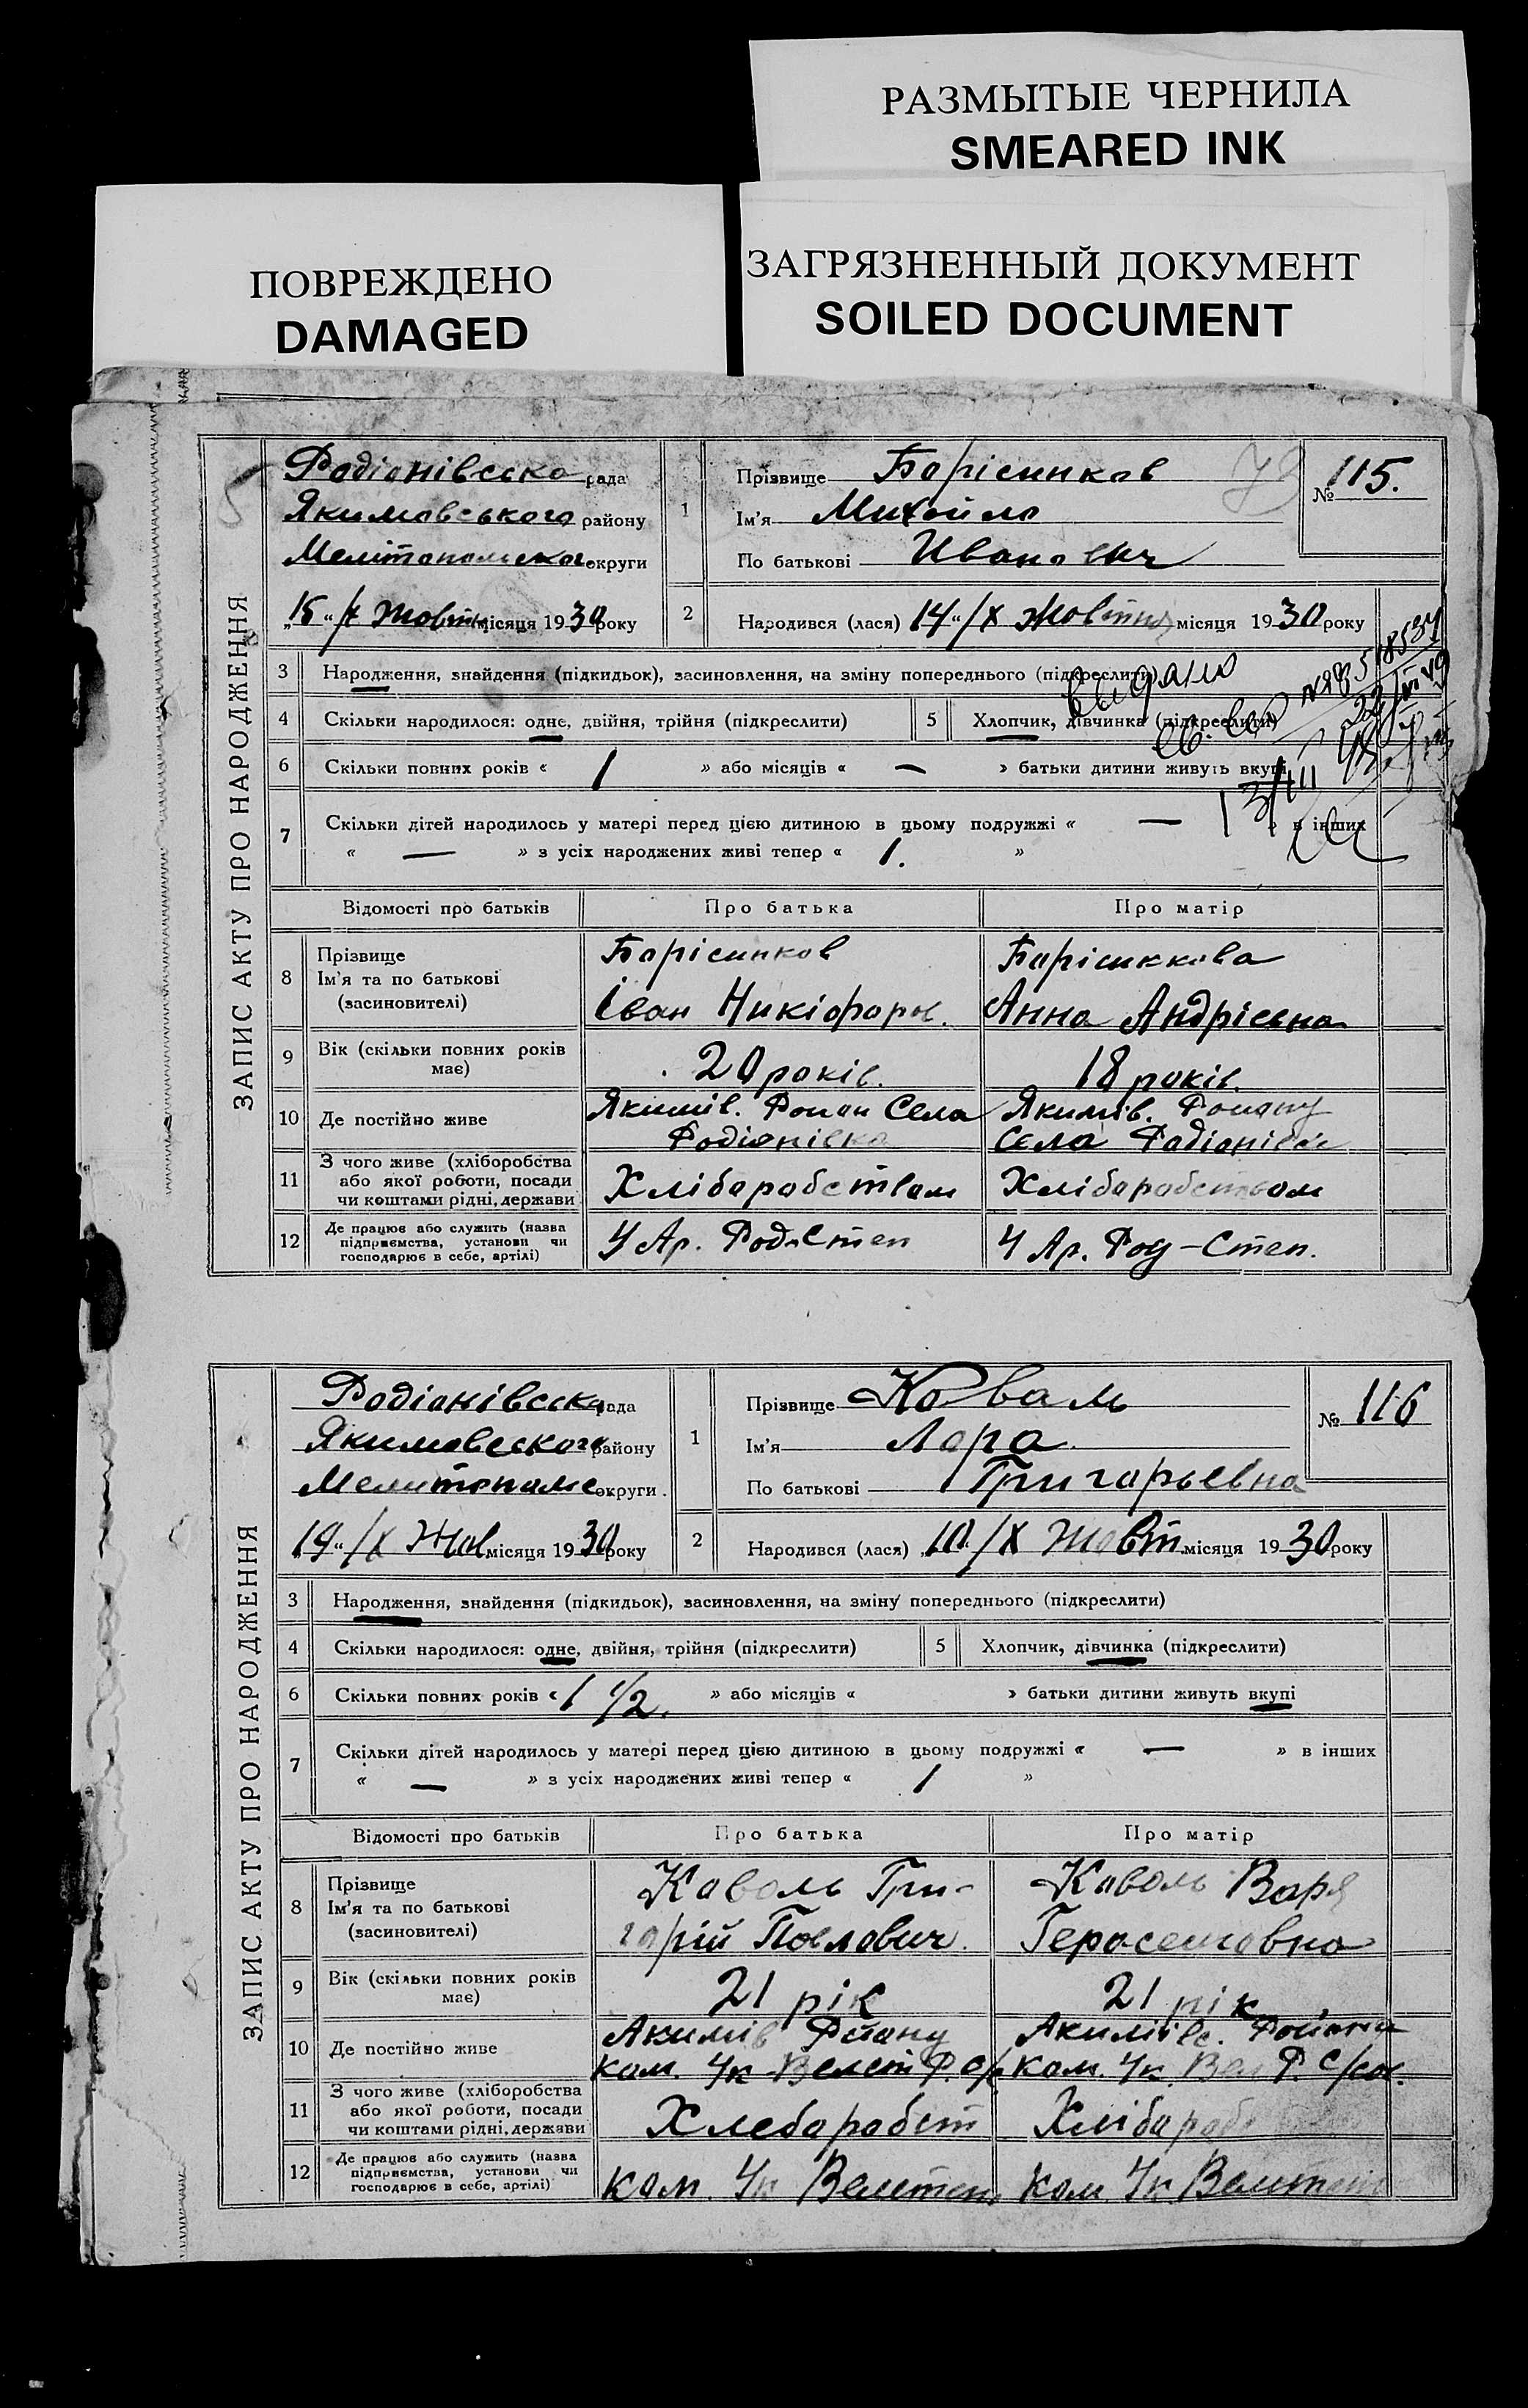 РАЗМЫТЫЕ ЧЕРНИЛА
SMEARED INK
ПОВРЕЖДЕНО
DAMAGED
ЗАГРЯЗНЕННЫЙ ДОКУМЕНТ
SOILED DOCUMENT
ЗАПИС АКТУ ПРО НАРОДЖЕННЯ
Родіонівська рада
Якимовського району
округи
1
Прізвище Борісенков
Ім'я Михойло
По батькові Иванович
№ 115.
15 "/X Жовтн місяця 1930 року
2
Народився (лася) 14 "/X Жовтня місяця 1930 року
3 Народження, знайдення (підкидьок), засиновлення, на зміну попереднього (підкреслити)
выдано
4 Скільки народилося: одне, двійня, трійня (підкреслити)
5 Хлопчик, дівчинка (підкреслити)
6 Скільки повних років « 1 » або місяців « — » батьки дитини живуть вкупі
7 Скільки дітей народилось у матері перед цією дитиною в цьому подружжі « — » в інших
« — » з усіх народжених живі тепер « 1. »
Відомості про батьків Про батька Про матір
8 Прізвище
Ім'я та по батькові
(засновителі)
Борісенков
Іван Никіфоров.
Борісенкова
Анна Андрієвна
9 Вік (скільки повних років
має)
20 років.
18 років.
10 Де постійно живе
Якимів. Роион Села
Родіонівка
Якимів. Роиону
Села Родіонівка
11 З чого живе (хліборобства
або якої роботи, посади
чи коштами рідні, держави
Хліборобством
Хліборобством
12 Де працює або служить (назва
підприємства, установи чи
господарює в себе, артілі)
У Ар. Род-Степ
У Ар. Род-Степ.
ЗАПИС АКТУ ПРО НАРОДЖЕННЯ
Родіонівська рада
Якимовського району
округи
1
Прізвище Коваль
Ім'я Лора
По батькові Григорьевна
№ 116
19 "/X Жов місяця 1930 року
2
Народився (лася) 10 "/X Жовт. місяця 1930 року
3 Народження, знайдення (підкидьок), засиновлення, на зміну попереднього (підкреслити)
4 Скільки народилося: одне, двійня, трійня (підкреслити)
5 Хлопчик, дівчинка (підкреслити)
6 Скільки повних років « 1 1/2. » або місяців « » батьки дитини живуть вкупі
7 Скільки дітей народилось у матері перед цією дитиною в цьому подружжі « — » в інших
« — » з усіх народжених живі тепер « 1 »
Відомості про батьків Про батька Про матір
8 Прізвище
Ім'я та по батькові
(засиновителі)
Коваль Гри-
горій Повлович
Коваль Варя
Геросемовна
9 Вік (скільки повних років
має)
21 рік
21 рік
10 Де постійно живе
Акимів Роиону
ком. Ук Р. С/р
Акимівс. Роиона
ком. Ук. Р. С/сов.
11 З чого живе (хліборобства
або якої роботи, посади
чи коштами рідні, держави
Хлеборобст
Хлібороб
12 Де працює або служить (назва
підприємства, установи чи
господарює в себе, артілі)
ком. Ук
ком. Ук.